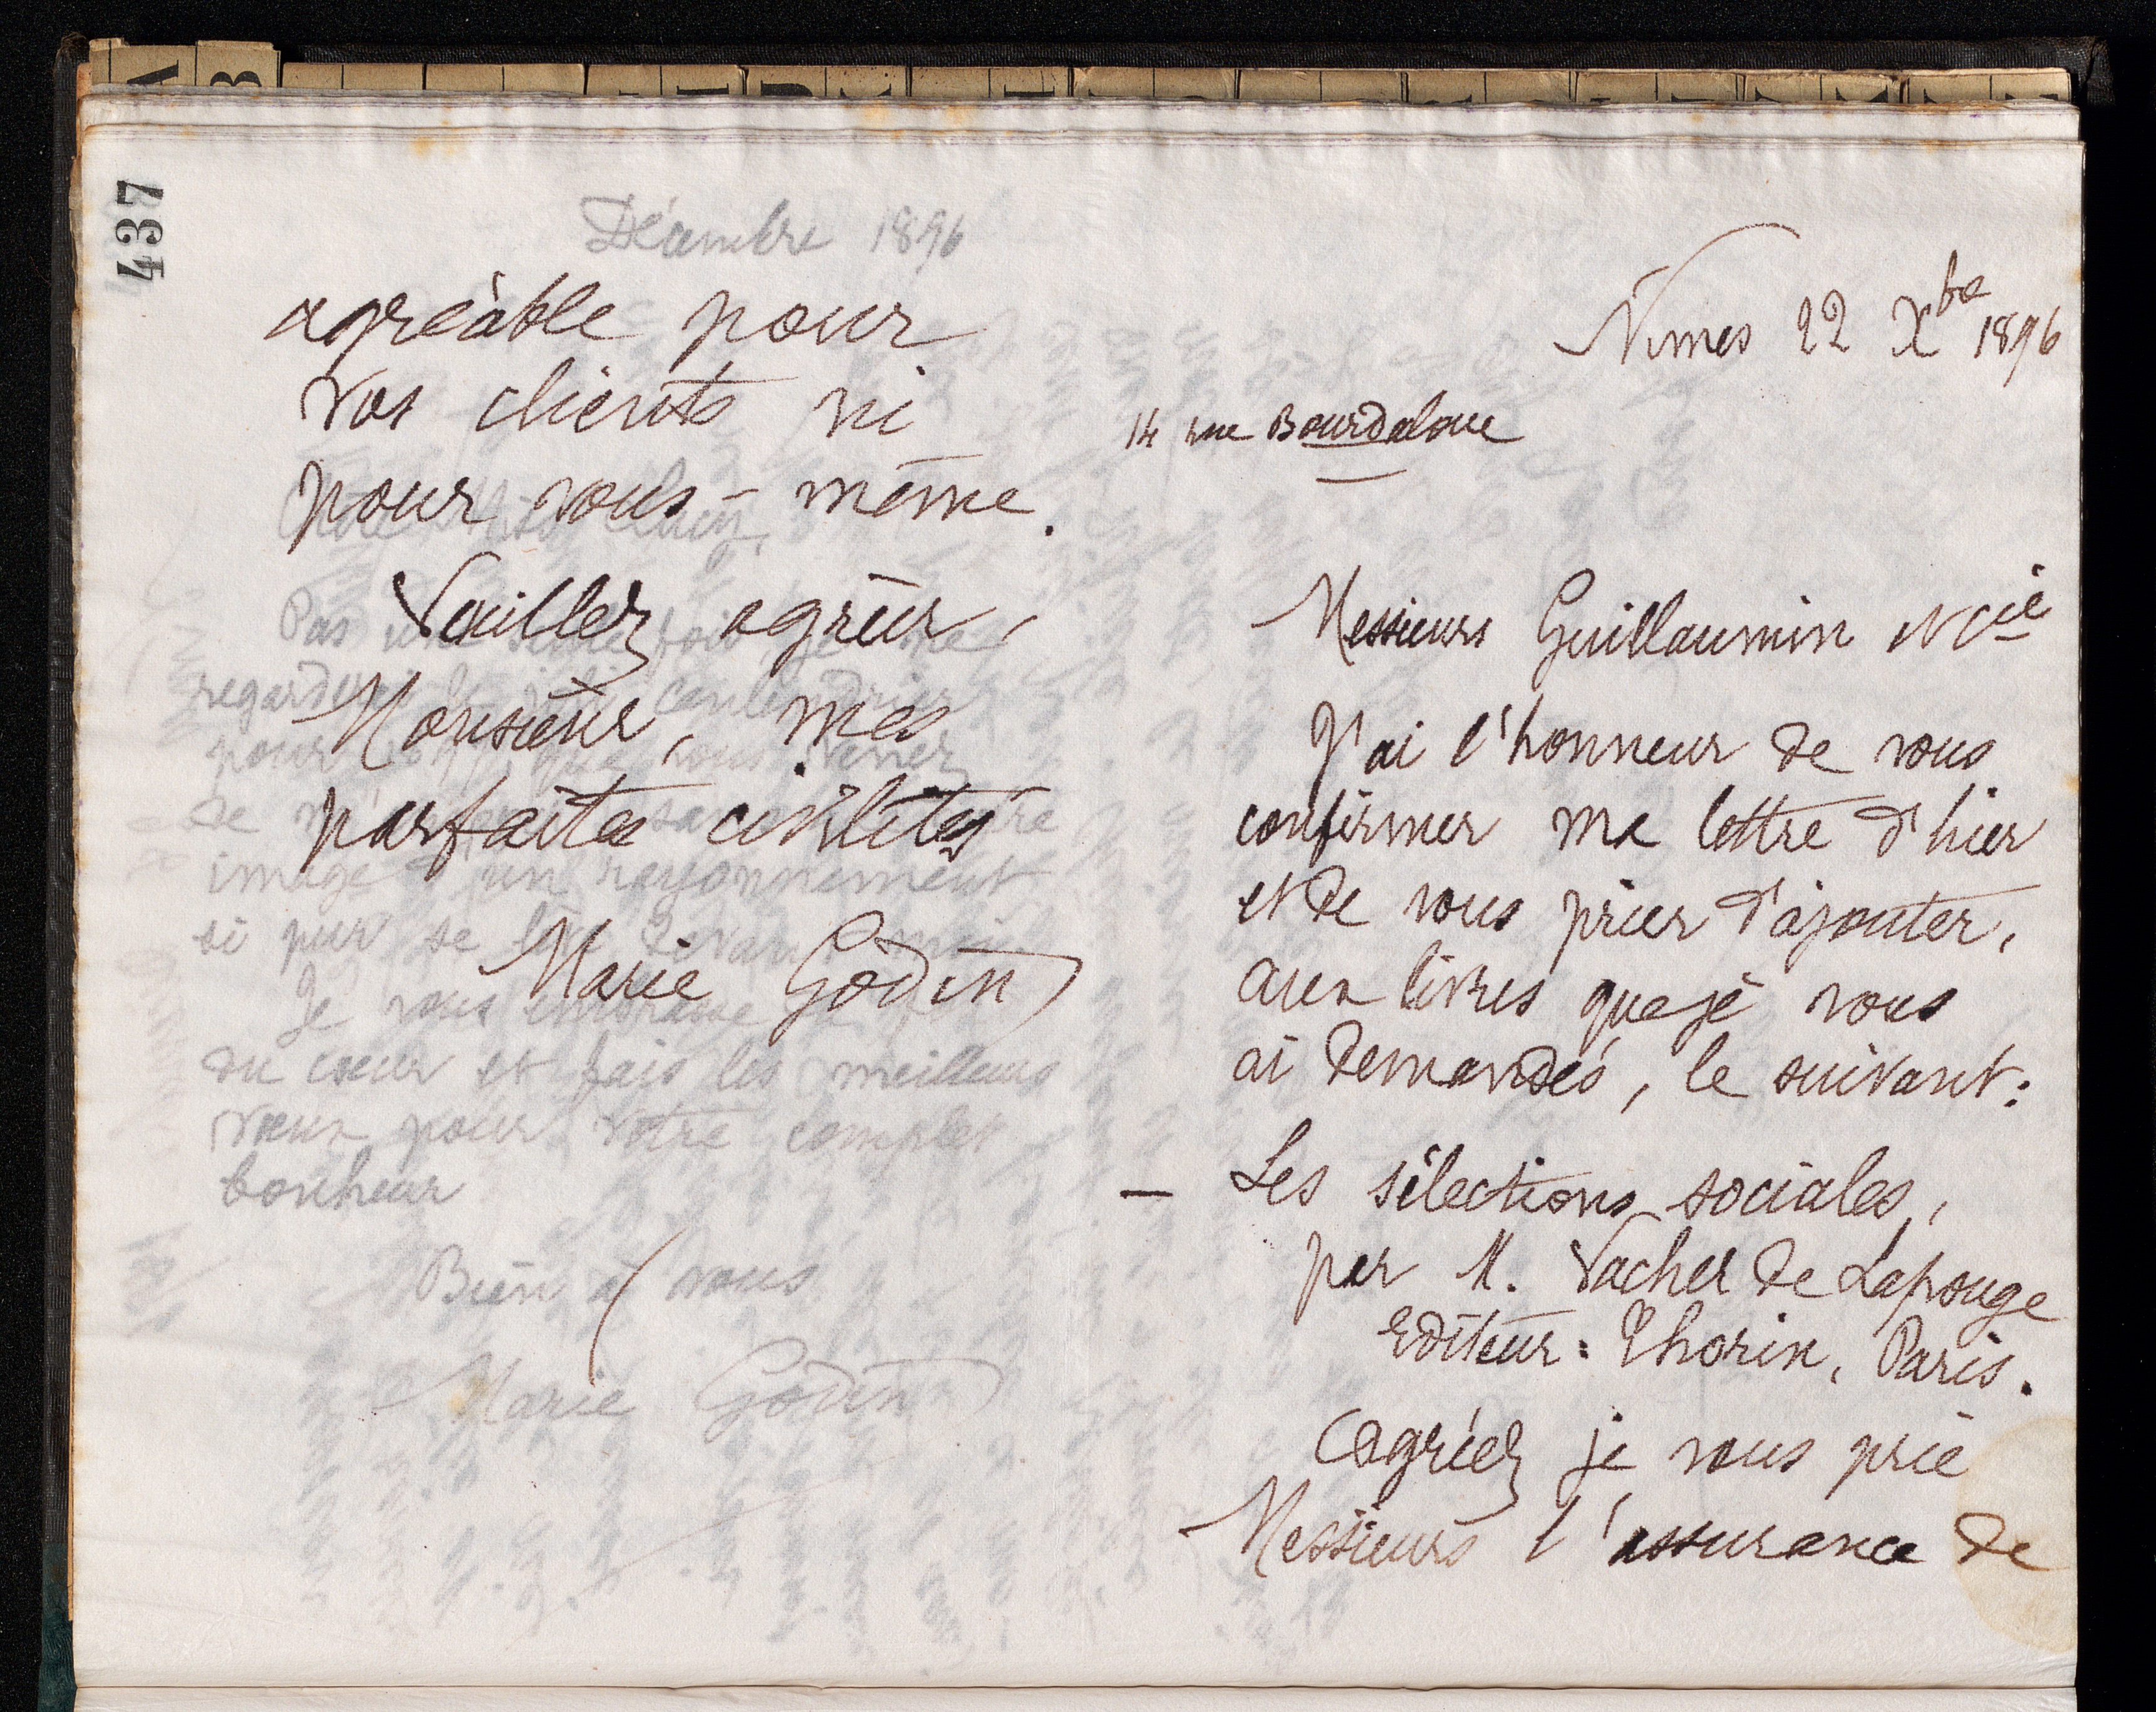 437
Décembre 1896
agréable pour
vos clients ni
pour vous-même.
Veuillez agréer,
Monsieur, mes
parfaites civilités
Marie Godin
Pas une seule fois je ne
regarderai
pour
de
image d'un rayonnement
si pur se
Je vous embrasse
du cœur et fais les meilleurs
vœux pour votre complet
bonheur
Bien à vous
Marie Godin
Nimes 22 Xbre 1896
14 rue Bourdaloue
Messieurs Guillaumin et Cie
J'ai l'honneur de vous
confirmer ma lettre d'hier
et de vous prier d'ajouter,
aux livres que je vous
ai demandés, le suivant:
— Les sélections sociales,
par M. Vacher de Lapouge
Editeur: Thorin, Paris.
Agréez je vous prie
Messieurs l'assurance de